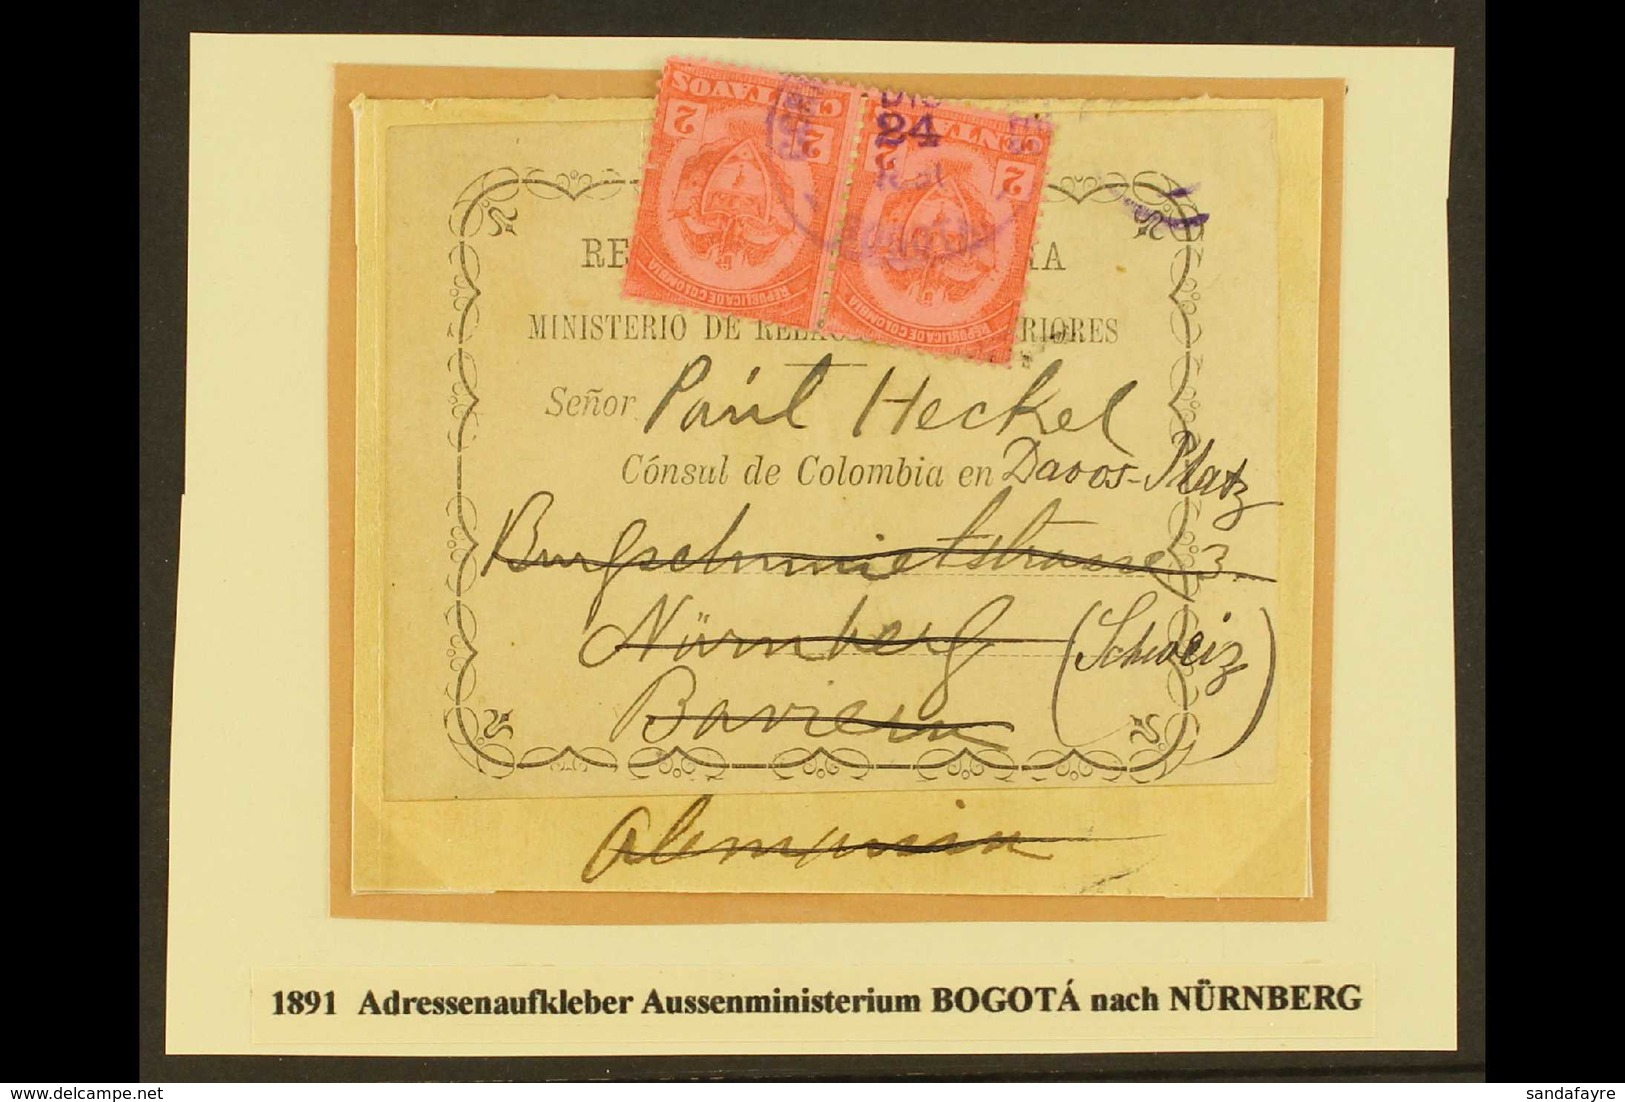 CENTAVOS
2 2
REPUBLICA DE COLOMBIA
CENTAVOS
2 2
REPUBLICA DE COLOMBIA
DIC
24
BOGOTA
RE RA
MINISTERIO DE RELAC RIORES
Señor Paul Heckel
Cónsul de Colombia en Davos-Platz
Burgschmietstrasse 3
Nürnberg (Schweiz)
Baviera
Alemania
1891 Adressenaufkleber Aussenministerium BOGOTÁ nach NÜRNBERG
sandafayre